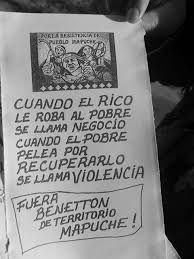 POR LA RESISTENCIA DEL
PUEBLO MAPUCHE
CUANDO EL RICO
LE ROBA AL POBRE
SE LLAMA NEGOCIO
CUANDO EL POBRE
PELEA POR
RECUPERARLO
SE LLAMA VIOLENCIA
FUERA
BENETTON
DE TERRITORIO
MAPUCHE!